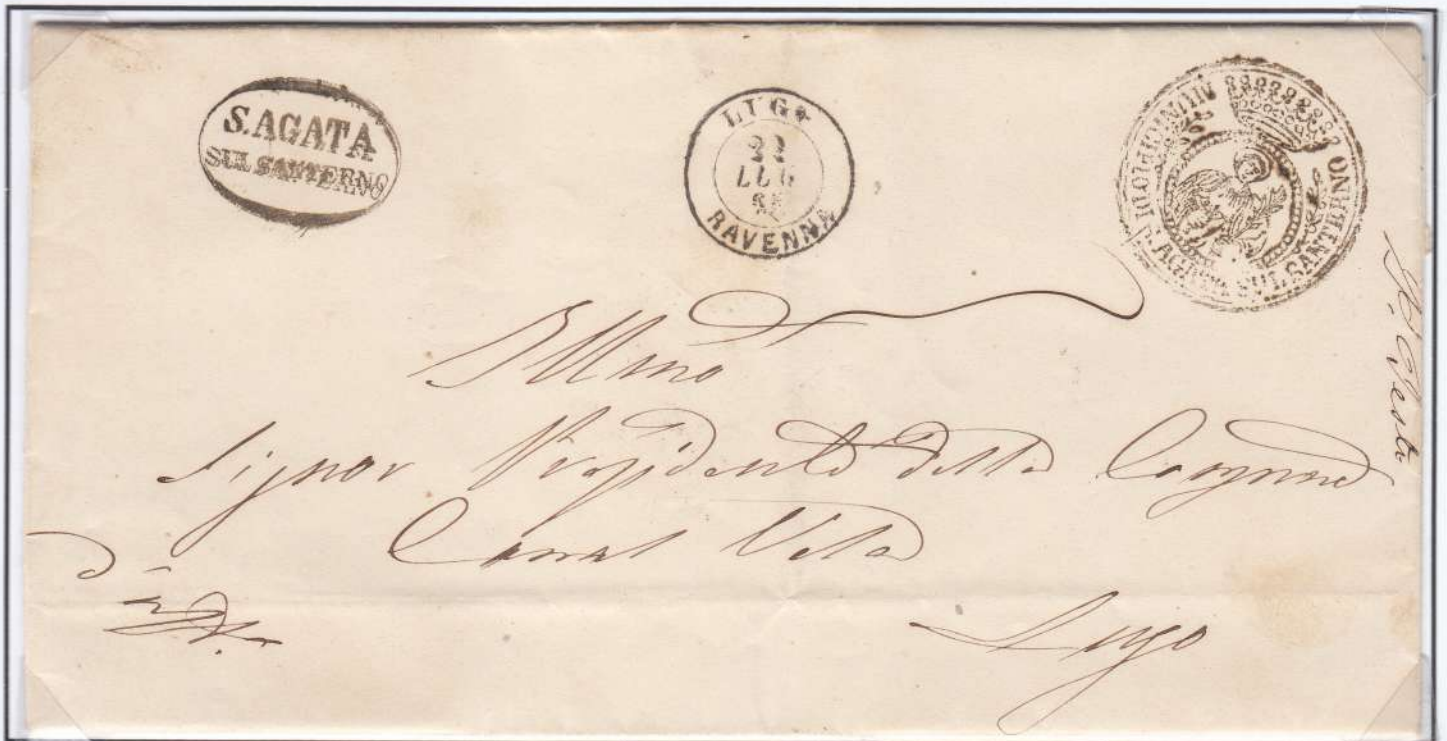 S. AGATA
SUL SANTERNO
LUGO
22
LUG
RAVENNA
MUNICIPIO DI S. AGATA SUL SANTERNO
Illmo
Signor Presidente della
Canal
Lugo